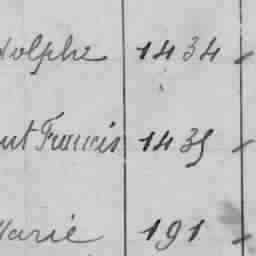 dolphe 1434 -
ut Francis 1435 -
Marie 191 -